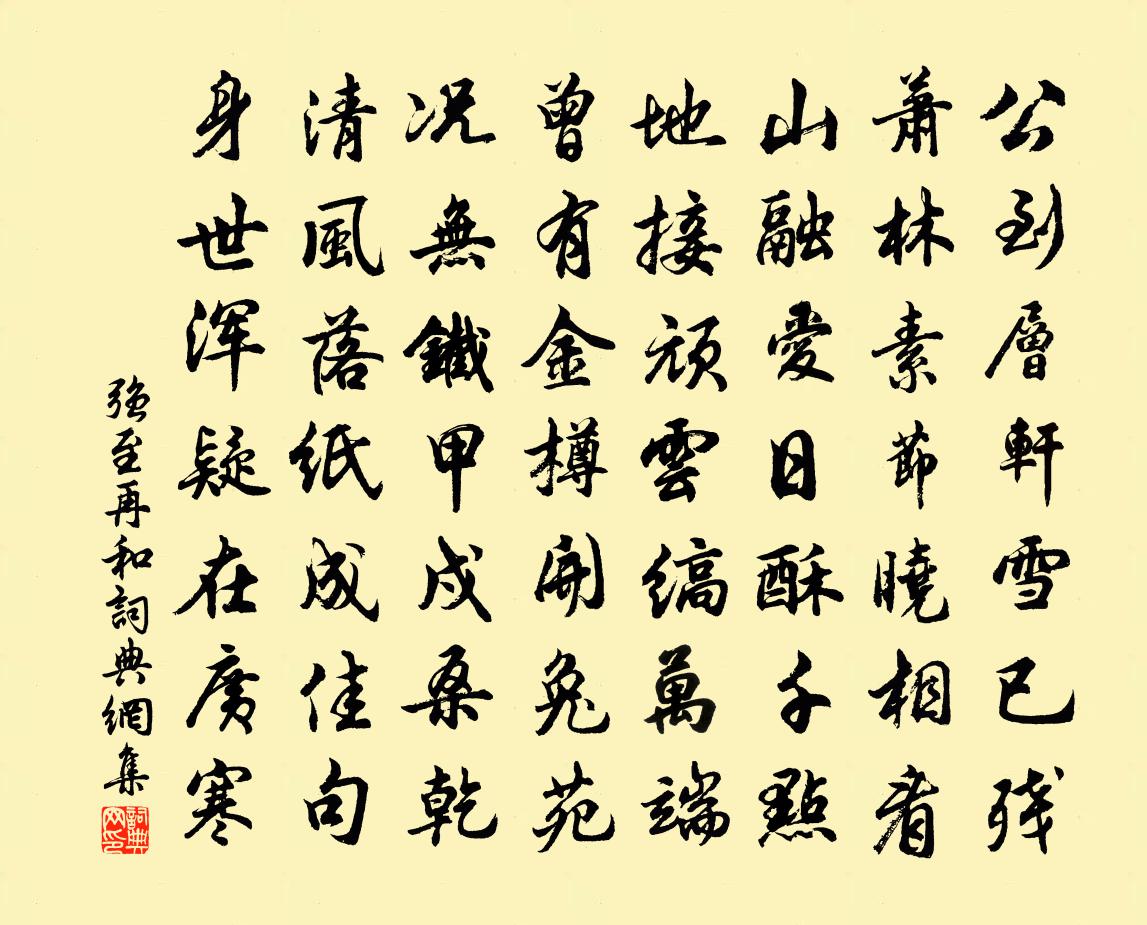 公到層軒雪已残
蕭林素節曉相看
山融愛日酥千點
地接頑雲縞萬端
曾有金樽開兔苑
况無鐵甲戍桑乾
清風落紙成佳句
身世浑疑在廣寒
強至再和詞典網集
詞典网印